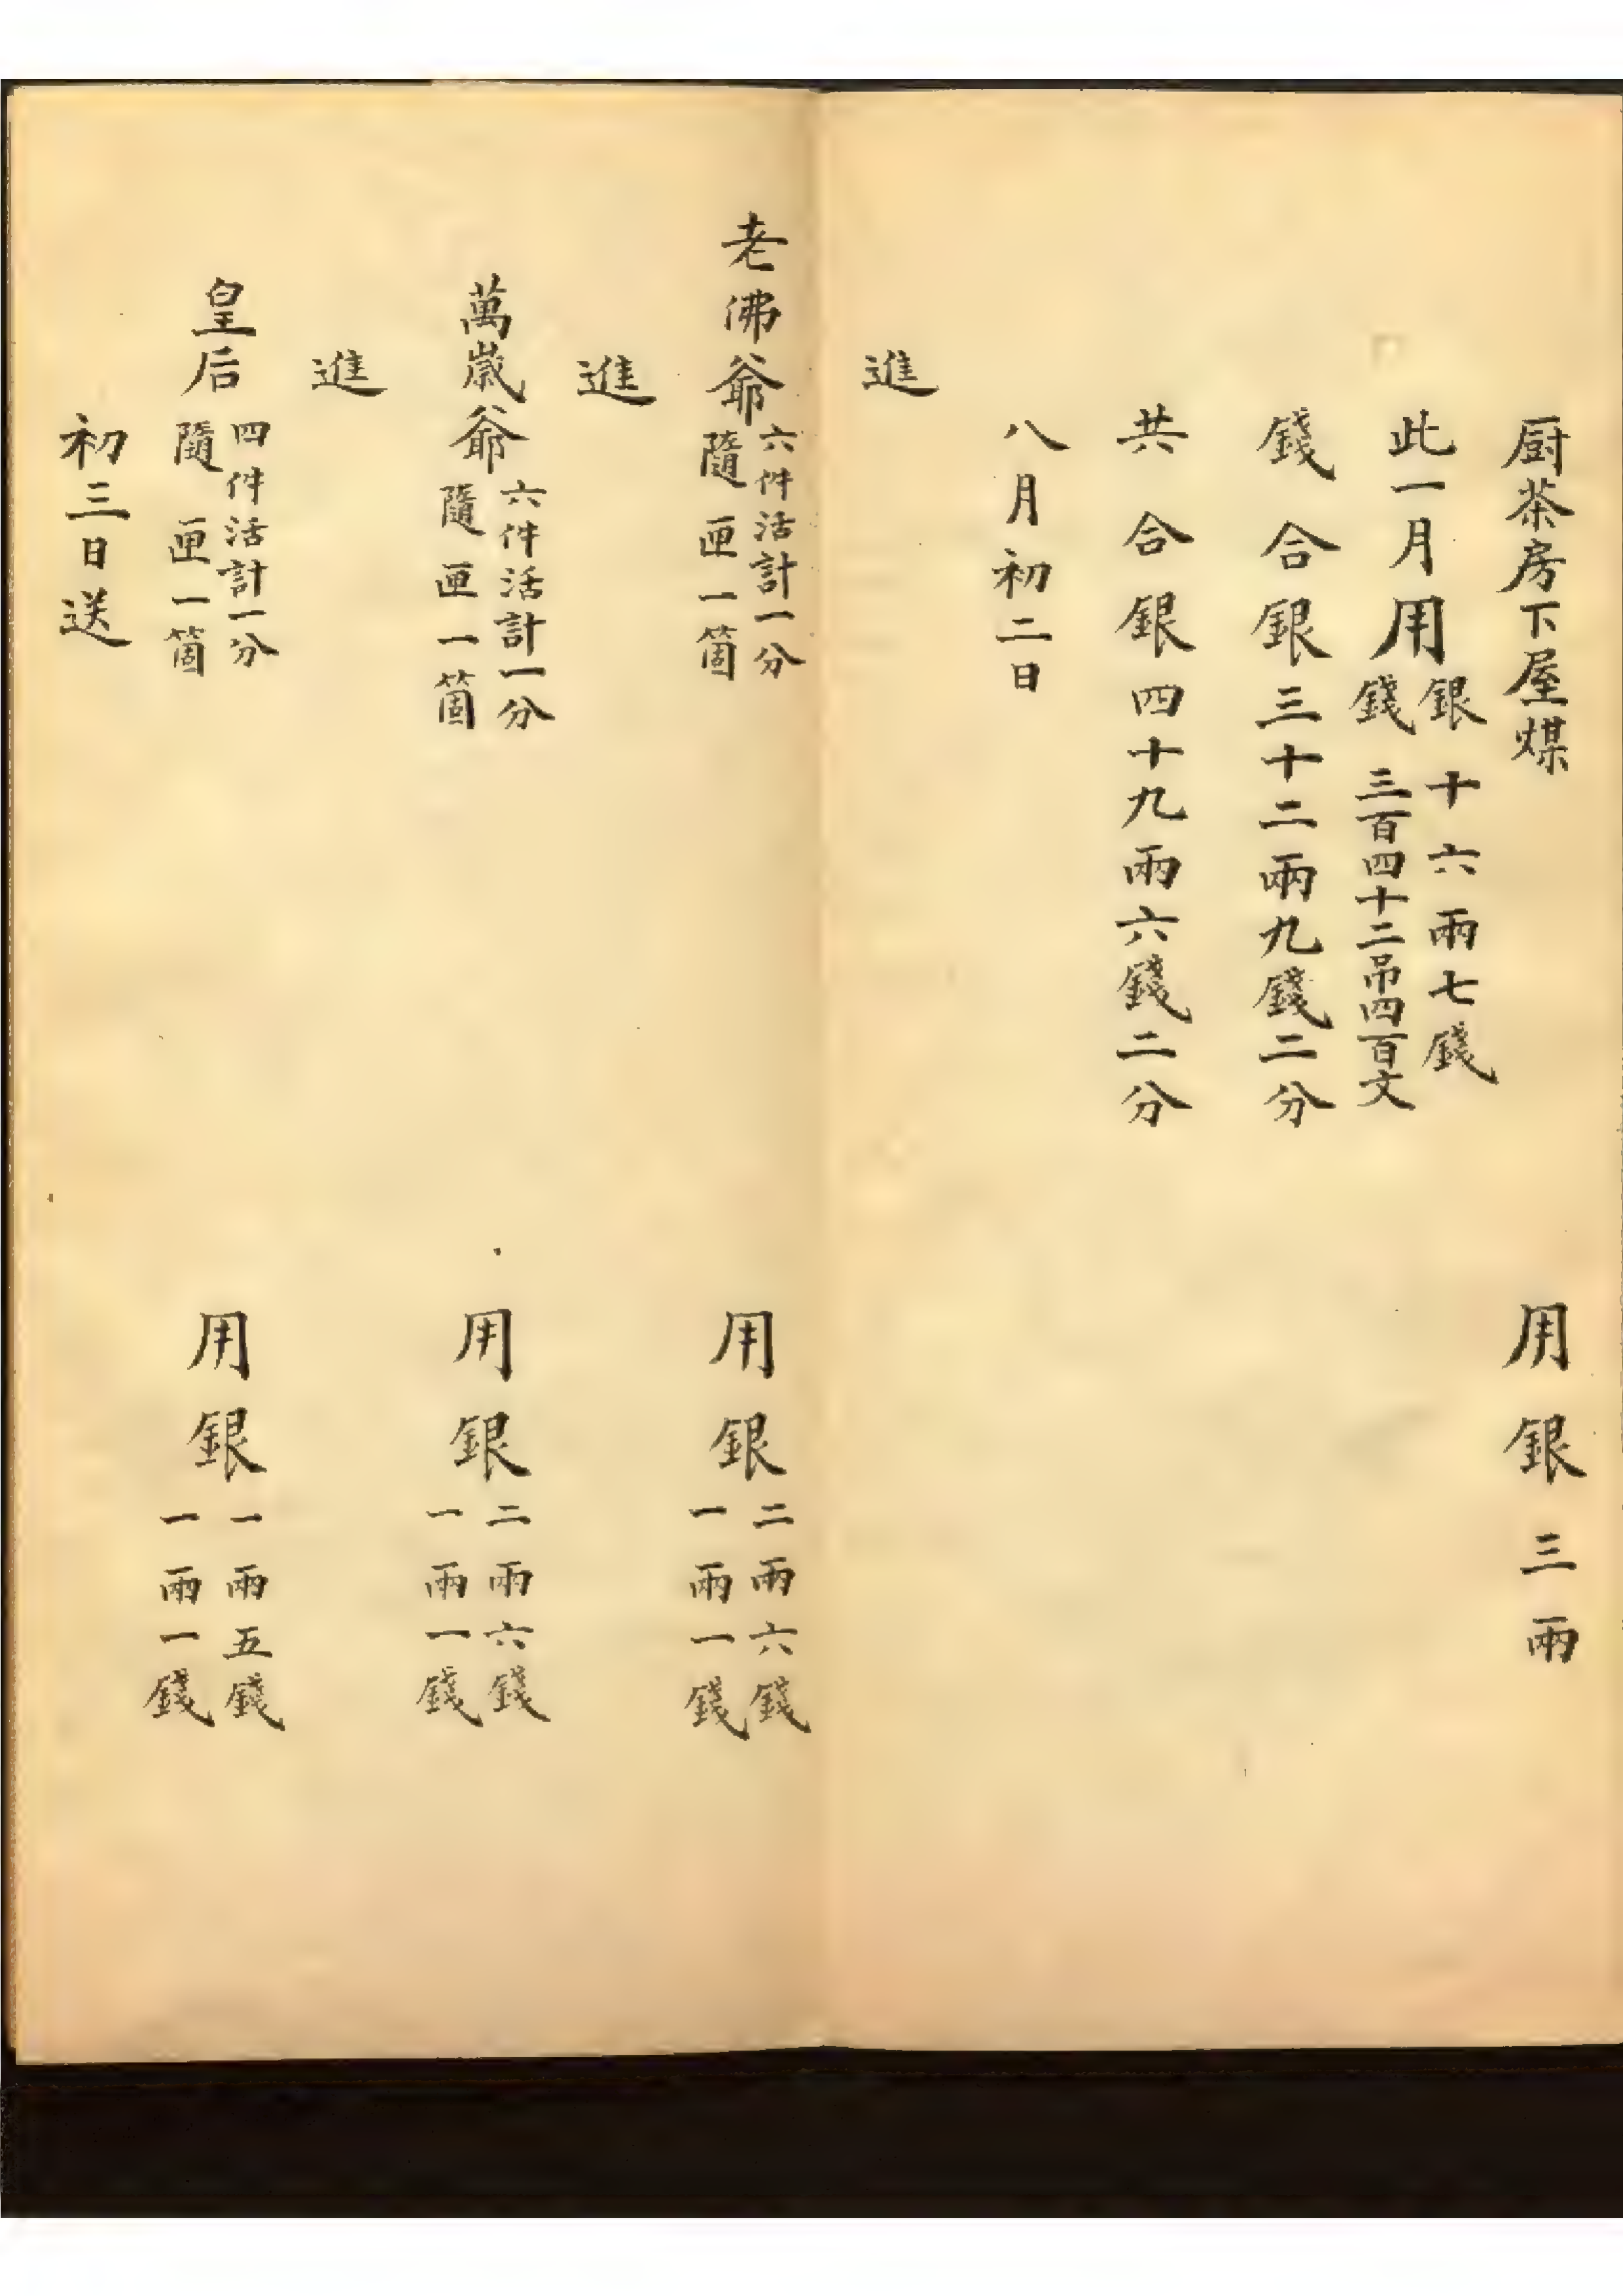 厨茶房下屋煤 用銀三兩
此一月用銀十六兩七錢
錢三百四十二吊四百文
錢合銀三十二兩九錢二分
共合銀四十九兩六錢二分
八月初二日
進
老佛爺六件活計一分 用銀二兩六錢
隨匣一箇 一兩一錢
進
萬歲爺六件活計一分 用銀二兩六錢
隨匣一箇 一兩一錢
進
皇后四件活計一分 用銀一兩五錢
隨匣一箇 一兩一錢
初三日送